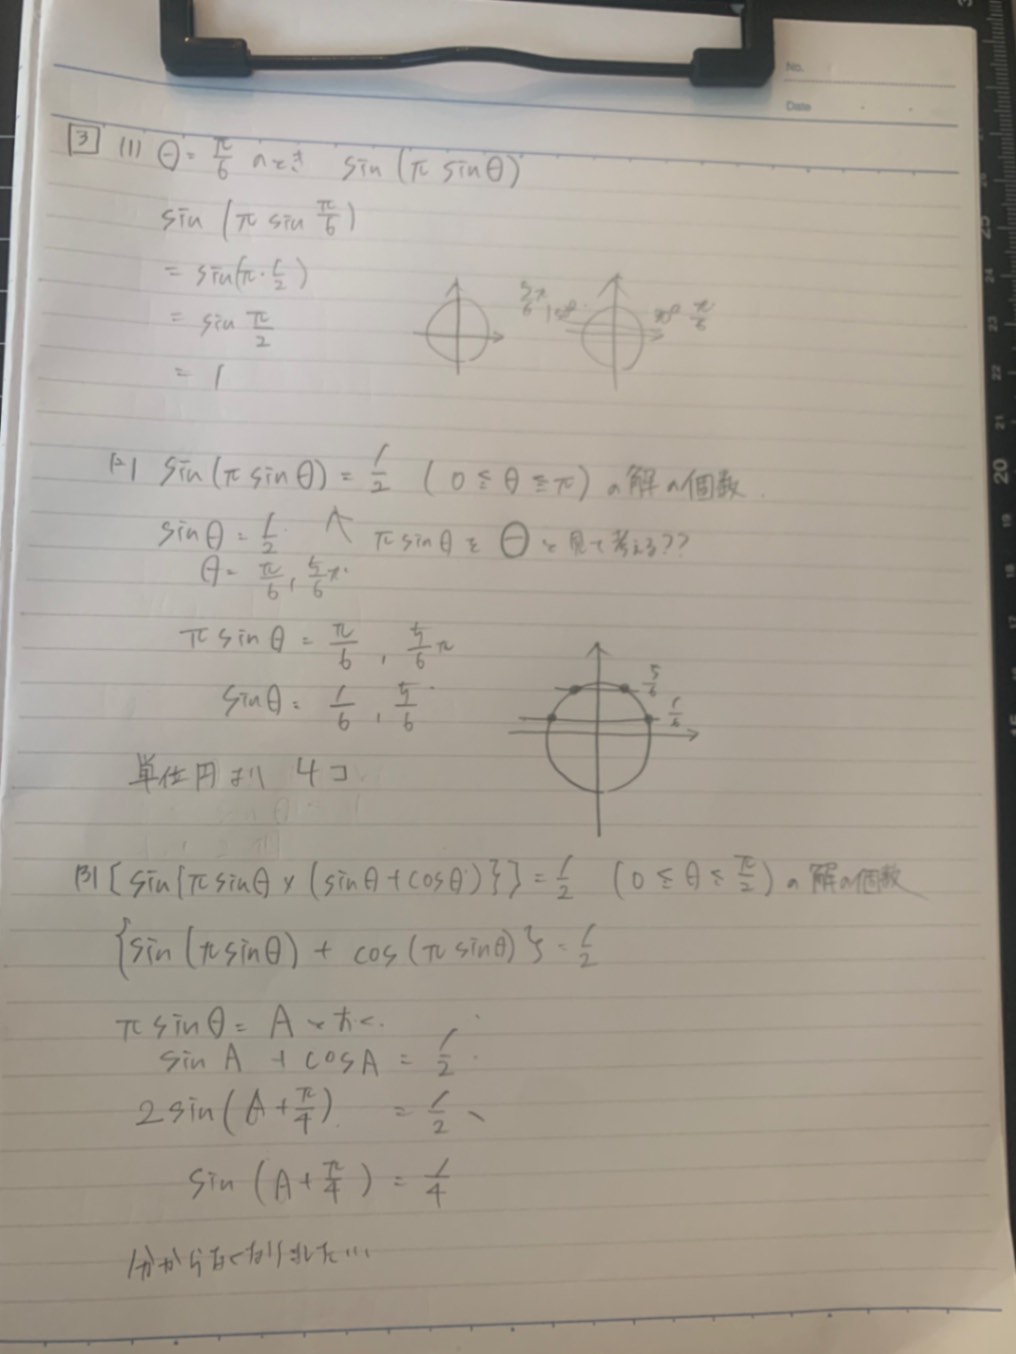 No.
Date
3 (1) θ = π/6 のとき sin (π sinθ)
sin (π sin π/6)
= sin(π・1/2)
= sin π/2
= 1
5π/6 150° 30° π/6
(2) sin (π sin θ) = 1/2 (0 ≦ θ ≦ π) の解の個数.
sin θ = 1/2 ↑ π sin θ を θ と見て考える??
θ = π/6, 5/6 π
π sin θ = π/6, 5/6 π
sin θ = 1/6, 5/6
5/6
1/6
単位円より 4コ
(3) [sin{π sinθ × (sinθ + cosθ)}] = 1/2 (0 ≦ θ ≦ π/2) の解の個数
{sin (π sin θ) + cos (π sin θ)} = 1/2
π sin θ = A とおく.
sin A + cos A = 1/2
2 sin (A + π/4) = 1/2
sin (A + π/4) = 1/4
分からなくなりました…